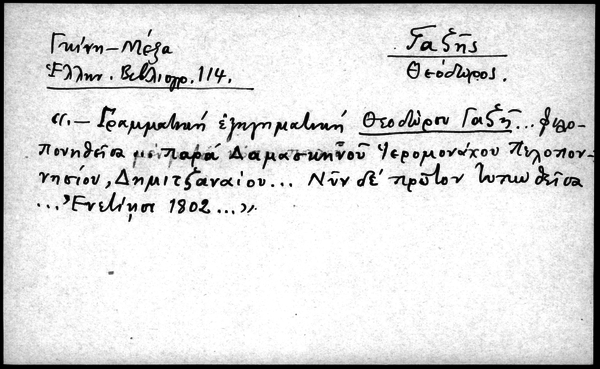 Γκίνη-Μέξα
Ἑλλην. Βιβλιογρ. 114.
Γαζῆς
Θεόδωρος.
«.- Γραμματική ἐξηγηματική Θεοδώρου Γαζῆ... φιλο-
πονηθεῖσα παρά Δαμασκηνοῦ Ἱερομονάχου Πελοπον-
νησίου, Δημιτζαναίου... Νῦν δέ πρῶτον τυπωθεῖσα
...Ἐνετίησι 1802...».